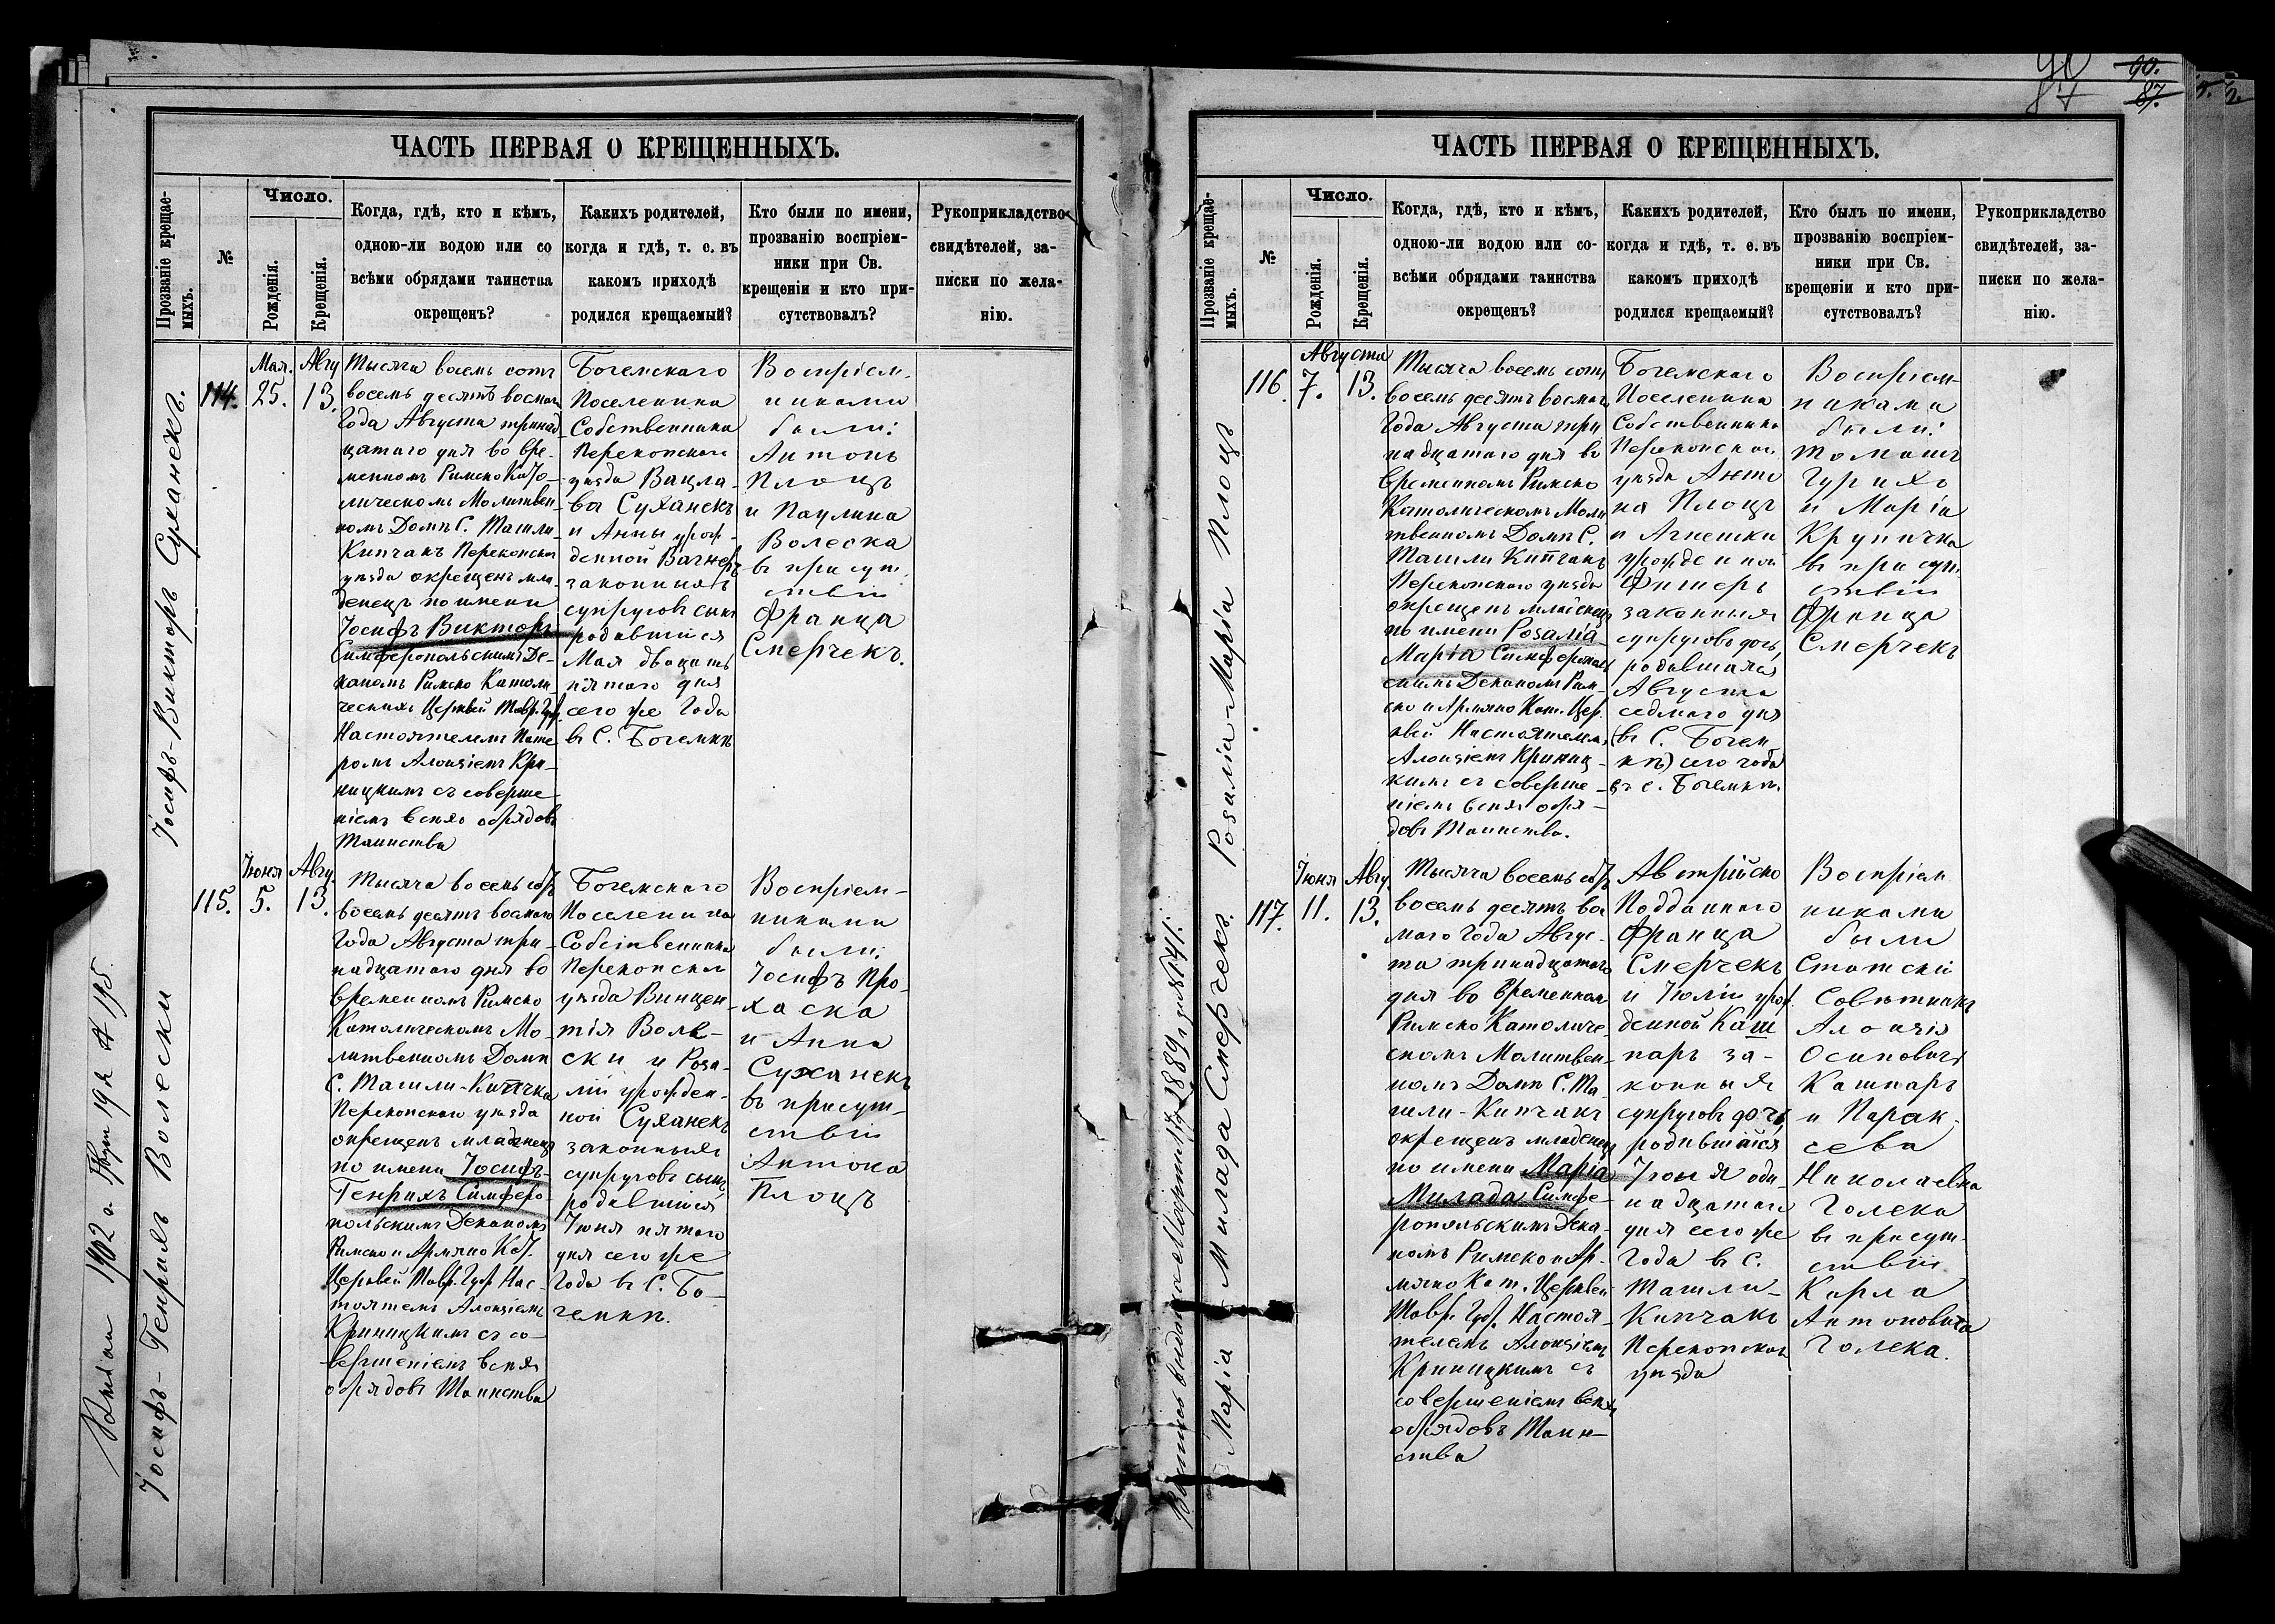 ЧАСТЬ ПЕРВАЯ О КРЕЩЕННЫХЪ.
Прозваніе крещае-
мыхъ.
№
Число.
Рожденія.
Крещенія.
Когда, гдѣ, кто и кѣмъ,
одною-ли водою или со
всѣми обрядами таинства
окрещенъ?
Какихъ родителей,
когда и гдѣ, т. е. въ
какомъ приходѣ
родился крещаемый?
Кто были по имени,
прозванію воспріем-
ники при Св.
крещеніи и кто при-
сутствовалъ?
Рукоприкладство
свидѣтелей, за-
писки по жела-
нію.
Іосифъ-Викторъ Суханекъ.
114.
Мая.
25.
Авгу
13.
Тысяча восемь сотъ
восемь десятъ восмаго
Года Августа тринад
цатаго дня во вре-
менномъ РимскоКато-
лическомъ Молитвен
номъ Домѣ С. Ташли-
Кипчакъ Перекопска
уѣзда окрещенъ мла
денецъ по имени
Іосифъ Викторъ
Симферопольскимъ Де-
каномъ Римско Католи
ческихъ Церквей Тавр. Губ.
Настоятелемъ Пате
ромъ Алоизіемъ Кри-
ницкимъ съ соверше
ніемъ всѣхъ обрядовъ
Таинства
Богемскаго
Поселенина
Собственника
Перекопскаго
уѣзда Вацла-
ва Суханекъ
и Анны урож-
денной Вагнеръ
законныхъ
супруговъ сынъ
родившійся
Мая двацать
пятаго дня
сего же Года
въ С. Богемкѣ
Воспріем-
никами
были:
Антонъ
Плоцъ
и Паулина
Волеска
въ присут
ствіи
Франца
Смерчекъ.
Іосифъ-Генрихъ Волески
115.
Іюня
5.
Авгу.
13.
Тысяча восемь сотъ
восемь десятъ восмаго
Года Августа три-
надцатаго дня во
временномъ Римско
Католическомъ Мо-
литвенномъ Домѣ
С. Ташли-Кипчка
Перекопскаго уѣзда
окрещенъ младенецъ
по имени Іосифъ-
Генрихъ Симферо-
польскимъ Деканомъ
Римско и Армяно Кат.
Церквей Тавр. Губ. Нас-
тоятелемъ Алоизіемъ
Криницкимъ съ со-
вершеніемъ всѣхъ
обрядовъ Таинства
Богемскаго
Поселенина
Собственника
Перекопскаго
уѣзда Винцен-
тія Воле-
ски и Роза-
ліи урожден-
ной Суханекъ
законныхъ
супруговъ сынъ
родившійся
Іюня пятаго
дня сего же
Года въ С. Бо-
гемкѣ.
Воспріем-
никами
были:
Іосифъ Про-
хаска
и Анна
Суханекъ
въ присут-
ствіи
Антона
Плоцъ
ЧАСТЬ ПЕРВАЯ О КРЕЩЕННЫХЪ.
Прозваніе крещае-
мыхъ.
№
Число.
Рожденія.
Крещенія.
Когда, гдѣ, кто и кѣмъ,
одною-ли водою или со-
всѣми обрядами таинства
окрещенъ?
Какихъ родителей,
когда и гдѣ, т. е. въ
какомъ приходѣ
родился крещаемый?
Кто былъ по имени,
прозванію воспріем-
ники при Св.
крещеніи и кто при-
сутствовалъ?
Рукоприкладство
свидѣтелей, за-
писки по жела-
нію.
90.
87.
Розалія-Марія Плоцъ
116.
Августа
7.
13.
Тысяча восемь сотъ
восемь десятъ восмаго
Года Августа три
надцатаго дня во
временномъ Римско
Католическомъ Моли
твенномъ Домѣ С.
Ташли Кипчакъ
Перекопскаго уѣзда
окрещенъ младенецъ
по имени Розалія
Марія Симферополь
скимъ Деканомъ Рим-
ско и Армяно Кат. Цер.
квей Настоятелемъ
Алоизіемъ Криниц-
кимъ съ соверше-
ніемъ всѣхъ обря-
довъ Таинства.
Богемскаго
Поселенина
Собственника
Перекопскаго
уѣзда Анто
на Плоцъ
и Агнешки
урожденной
Фишеръ
законныя
супруговъ дочь,
родившаяся
Августа
седмаго дня
(въ С. Богем
кѣ) сего года
въ с. Богемкѣ.
Воспріем-
никами
были:
Томашъ
Гурихъ
и Марія
Крупичка
въ присут.
ствіи
Франца
Смерчекъ
Марія-Милада Смерчекъ.
117.
Іюня
11.
Авгу.
13.
Тысяча восемь сотъ
восемь десятъ вос
маго Года Авгус-
та тринадцатаго
дня во временномъ
Римско Католиче
скомъ Молитвен-
номъ Домѣ С. Та-
шли-Кипчакъ
окрещенъ младенецъ
по имени Марія
Милада Симфе-
ропольскимъ Дека-
номъ Римско и Ар-
мяно Кат. Церквей
Тавр. Губ. Настоя-
телемъ Алоизіемъ
Криницкимъ съ
совершеніемъ всѣхъ
обрядовъ Таин-
ства
Австрійско
Подданнаго
Франца
Смерчекъ
и Юліи урож.
денной Каш
паръ за-
конныя
супруговъ дочь,
родившаяся
Іюня оди-
надцатаго
дня сего же
Года въ С.
Ташли-
Кипчакъ
Перекопскаго
уѣзда
Воспріем
никами
были
Статскій
Совѣтникъ
Алоизій
Осиповичъ
Кашпаръ
и Парак-
сева
Николаевна
Голека
въ присут-
ствіи
Карла
Антоновича
Голека.